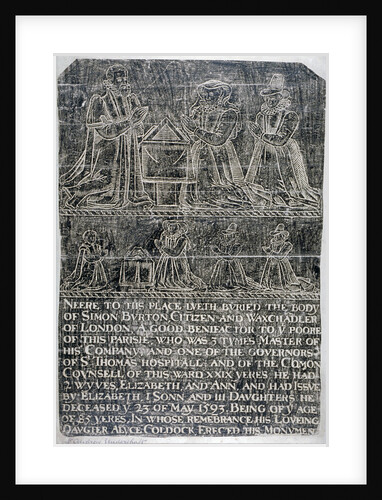 NEERE TO THIS PLACE LYETH BVRIED THE BODY
OF SIMON BVRTON CITIZEN AND WAXCHĀDLER
OF LONDON, A GOOD BENIFACTOR TO Yᵉ POORE
OF THIS PARISHE, WHO WAS 3 TYMES MASTER OF
HIS COMPANY, AND ONE OF THE GOVERNORS
OF Sᵗ THOMAS HOSPITALL: AND OF THE CŌMON
COVNSELL OF THIS WARD XXIX YERES. HE HAD
2 WYVES, ELIZABETH, AND ANN, AND HAD ISSVE
BY ELIZABETH, I SONN AND III DAVGHTERS. HE
DECEASED Yᵉ 23 OF MAY 1593, BEING OF Yᵉ AGE
OF 85 YERES, IN WHOSE REMEMBRANCE HIS LOVEING
DAVGTER ALYCE COLDOCK ERECTED THIS MONVMENT